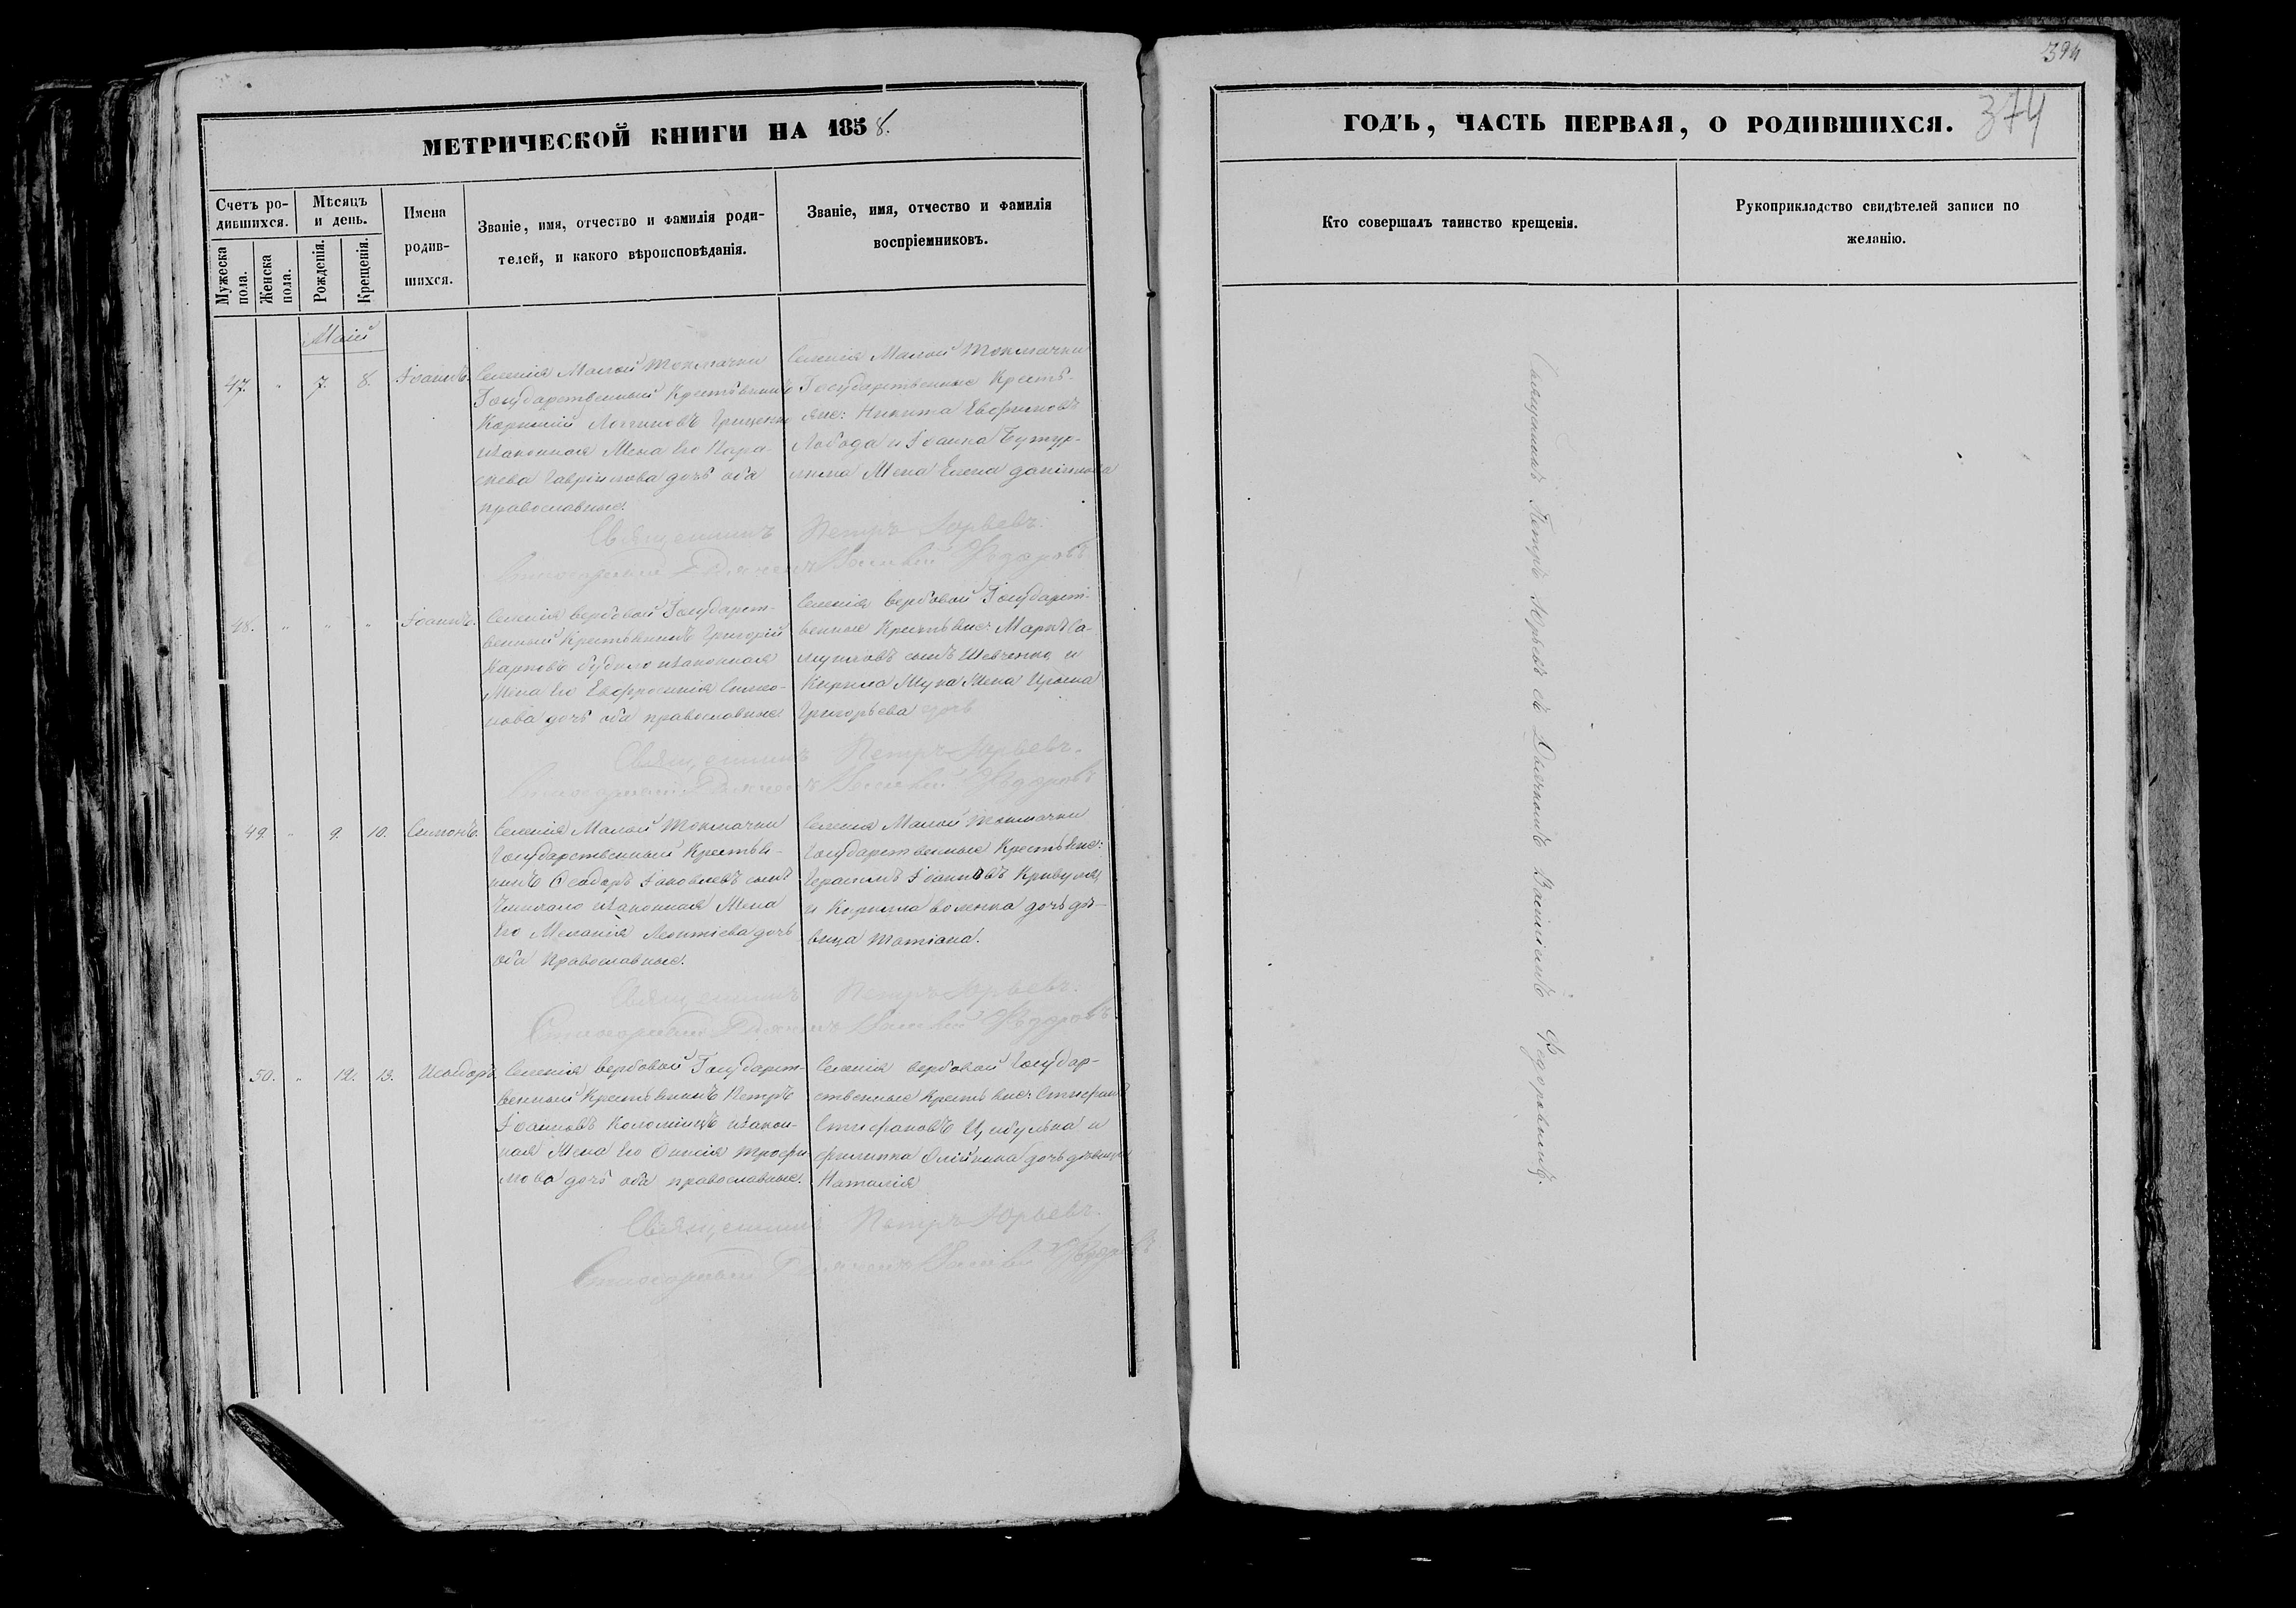 394
374
МЕТРИЧЕСКОЙ КНИГИ НА 1858.
Счетъ ро-
дившихся.
Мѣсяцъ
и день.
Имена
родив-
шихся.
Званіе, имя, отчество и фамилія роди-
телей, и какого вѣроисповѣданія.
Званіе, имя, отчество и фамилія
воспріемниковъ.
Мужеска
пола.
Женска
пола.
Рожденія.
Крещенія.
Маій
47. " 7. 8. Іоаннъ.
Селенія Малой Токмачки
Государственный Крестьянинъ
Логгиновъ Гриценко
изаконная Жена Его Пара-
скева Гавріилова дочь оба
православные.
Селенія Малой Токмачки
Государственные Кресть-
яне: Никита Евфимовъ
Лобода и Іоанна Бутур-
Жена Елена
Священникъ Петръ Юрьевъ.
Стихарный Дьячекъ Василій Ѳедоровъ
48. " " " Іоаннъ.
Селенія Вербовой Государст-
венный Крестьянинъ Григорій
Карповъ изаконная
Жена Его Евфросинія Симео-
нова дочь оба православные
Селенія Вербовой Государст-
венные Крестьяне: Маркъ Са-
муиловъ сынъ Шевченко и
Кирила Мука Жена Ирина
Григорьева дочь
Священникъ Петръ Юрьевъ.
Стихарный Дьячекъ Василій Ѳедоровъ
49. " 9. 10. Симонъ.
Селенія Малой Токмачки
Государственный Крестья-
нинъ Ѳеодоръ Іаковлевъ сынъ
изаконная Жена
Его Меланія Леонтіева дочь
оба Православные.
Селенія Малой Токмачки
Государственные Крестьяне:
Герасимъ Іоанновъ Кривуля
и Кирила дочь дѣ-
вица Татіана.
Священникъ Петръ Юрьевъ.
Стихарный Дьячекъ Василій Ѳедоровъ
50. " 12. 13. Исидоръ
Селенія Вербовой Государст-
венный Крестьянинъ Петръ
Іоанновъ Коломіецъ изакон-
ная Жена Его Трофи-
мова дочь оба православные.
Селенія Вербовой Государ-
ственные Крестьяне: Стефанъ
Стефановъ Цибулька и
Филиппа Олійника дочь дѣвица
Наталія
Священникъ Петръ Юрьевъ.
Стихарный Дьячекъ Василій Ѳедоровъ
ГОДЪ, ЧАСТЬ ПЕРВАЯ, О РОДИВШИХСЯ.
Кто совершалъ таинство крещенія.
Рукоприкладство свидѣтелей записи по
желанію.
Священникъ Петръ Юрьевъ съ Дьячкомъ Василіемъ Федоровымъ.